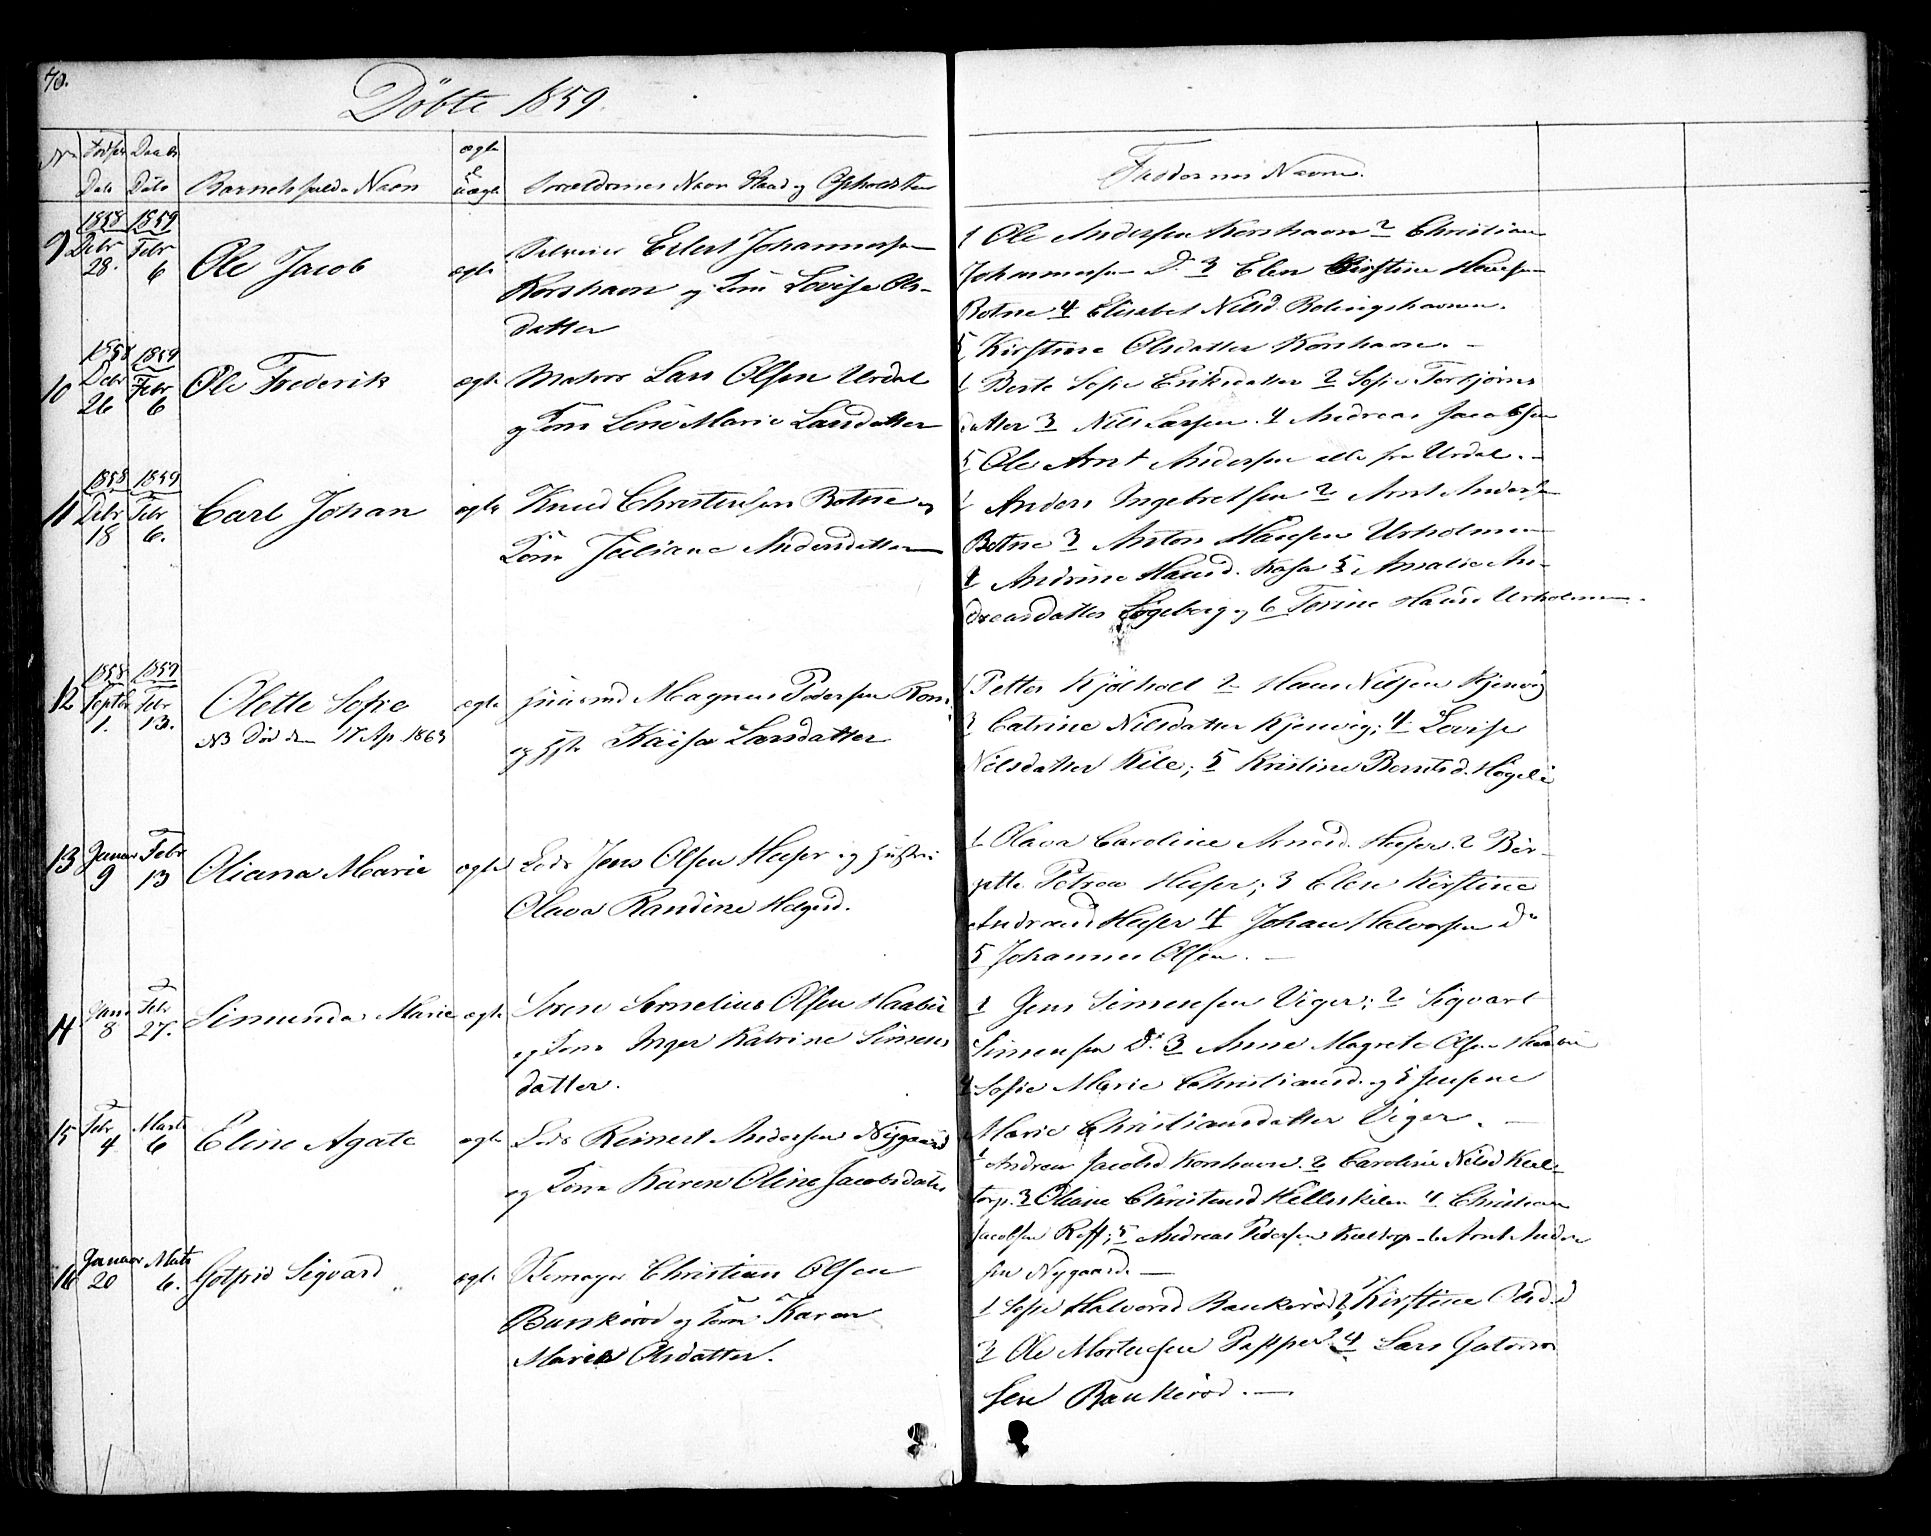 70.
Döbte 1859.
No Fødsels Dato Daabs Dato Barnets fulde Navn ægte uægte Forældrenes Navn Stand og Opholdsted
Faddernes Navne.
9 1858 Debr 28. 1859 Febr 6 Ole Jacob ægte
Eilert Johannessen
Korshavn og Kone Lovise Ols-
datter
1 Ole Andersen Korshavn 2 Christian
Johannessen Do 3 Elen Kirstine Hansen
Botne 4 Elisabet Nilsd.
5 Kirstine Olsdatter Korshavn. -
10 1858 Debr 26 1859 Febr 6 Ole Frederik ægte
Matros Lars Olsen Urdal
og Kone Lene Marie Larsdatter
1 Berte Sofie Eriksdatter 2 Sofie Torbjörns
datter 3 Nils Larsen. 4 Andreas Jacobsen
5 Ole Arnt Andersen alle fra Urdal. -
11 1858 Debr 18 1859 Febr 6. Carl Johan ægte
Knud Christensen Botne og
Kone Juliane Andersdatter
1 Anders Ingebretsen 2 Arnt Anders
Botne 3 Anton Hansen Urholmen
4 Andrine Hansd. Kasa 5 Amalie An-
dreasdatter og 6 Torine Hansd Urholmen.
12 1858 Septbr 1. 1859 Febr 13. Olette Sofie ægte
NB Död den 17 Ap. 1863
Magnus Pedersen
og Kaisa Larsdatter
1 Petter Kjölholt 2 Hans Nilsen Kjenvig
3 Catrine Nilsdatter Kjenvig; 4 Lovise
Nilsdatter Kile; 5 Kristine Berntsd.
13 Januar 9 Febr 13 Oliana Marie ægte
Lods Jens Olsen Huser og Hustru
Olava Randine Helgesd.
1 Olava Caroline Arnesd. Huser 2 Bir-
gitte Petrea Huser; 3 Elen Kirstine
Andreasd Huser 4 Johan Halvorsen do
5 Johannes Olsen. -
14 Janu 8 Febr 27. Simunda Marie ægte
Sören Cornelius Olsen
og Kone Inger Katrine Simens
datter.
1 Jens Simensen Viger; 2 Sigvart
Simensen Do. 3 Anne Magrete Olsen
4 Sofie Marie Christiansd. og 5 Jensine
Marie Christiansdatter Viger. -
15 Febr 4 Marts 6 Eline Agate ægte
Lods Reinert Andersen Nygaard
og Kone Karen Oline Jacobsdatter
1 Andrea Jacobsd Korshavn. 2 Caroline Nilsd
torp. 3 Oliane Christensd 4 Christian
Jacobsen Roff; 5 Andreas Pedersen 6 Arnt Ander
sen Nygaard. -
16 Januar 20 Marts 6. Gotfrid Sigvard ægte
Christian Olsen
Bankerød og Kone Karen
Marie Olsdatter.
1 Sofie Halvorsd Bankerød 2 Kirstine Olsd. d
3 Ole Mortensen Papper 4 Lars
sen Bankerød. -